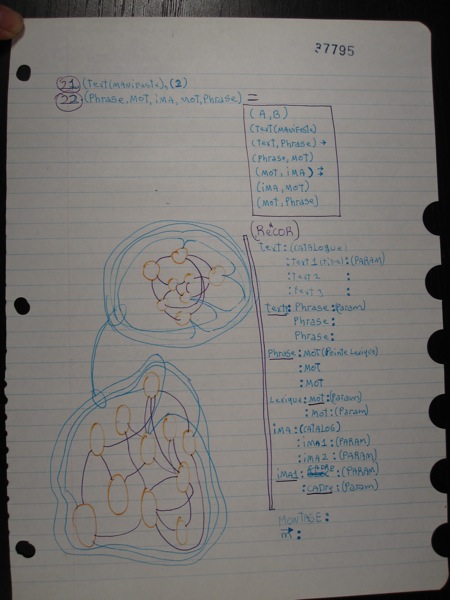 37795
21 (Text(MANiFeste), (2)
22 (Phrase, MOT, iMA, MOT, Phrase) =
(A, B)
(Text(MANiFeste)
(Text, Phrase) →
(Phrase, MOT)
(MOT, iMA)
(iMA, MOT)
(MOT, Phrase)
(RéCOR)
Text : (CATALOGUE)
: Text 1 (titre) : (PARAM)
: Text 2 :
: Text 3 :
Text : Phrase : (Param)
Phrase :
Phrase :
Phrase : MOT (Pointe Lexique)
: MOT
: MOT
Lexique : MOT : (Param)
: MOT : (Param)
iMA : (CATALOG)
: iMA1 : (PARAM)
: iMA2 : (PARAM)
iMA1 : CADRE : (PARAM)
: CADre : (Param)
MONTAGE :
m :